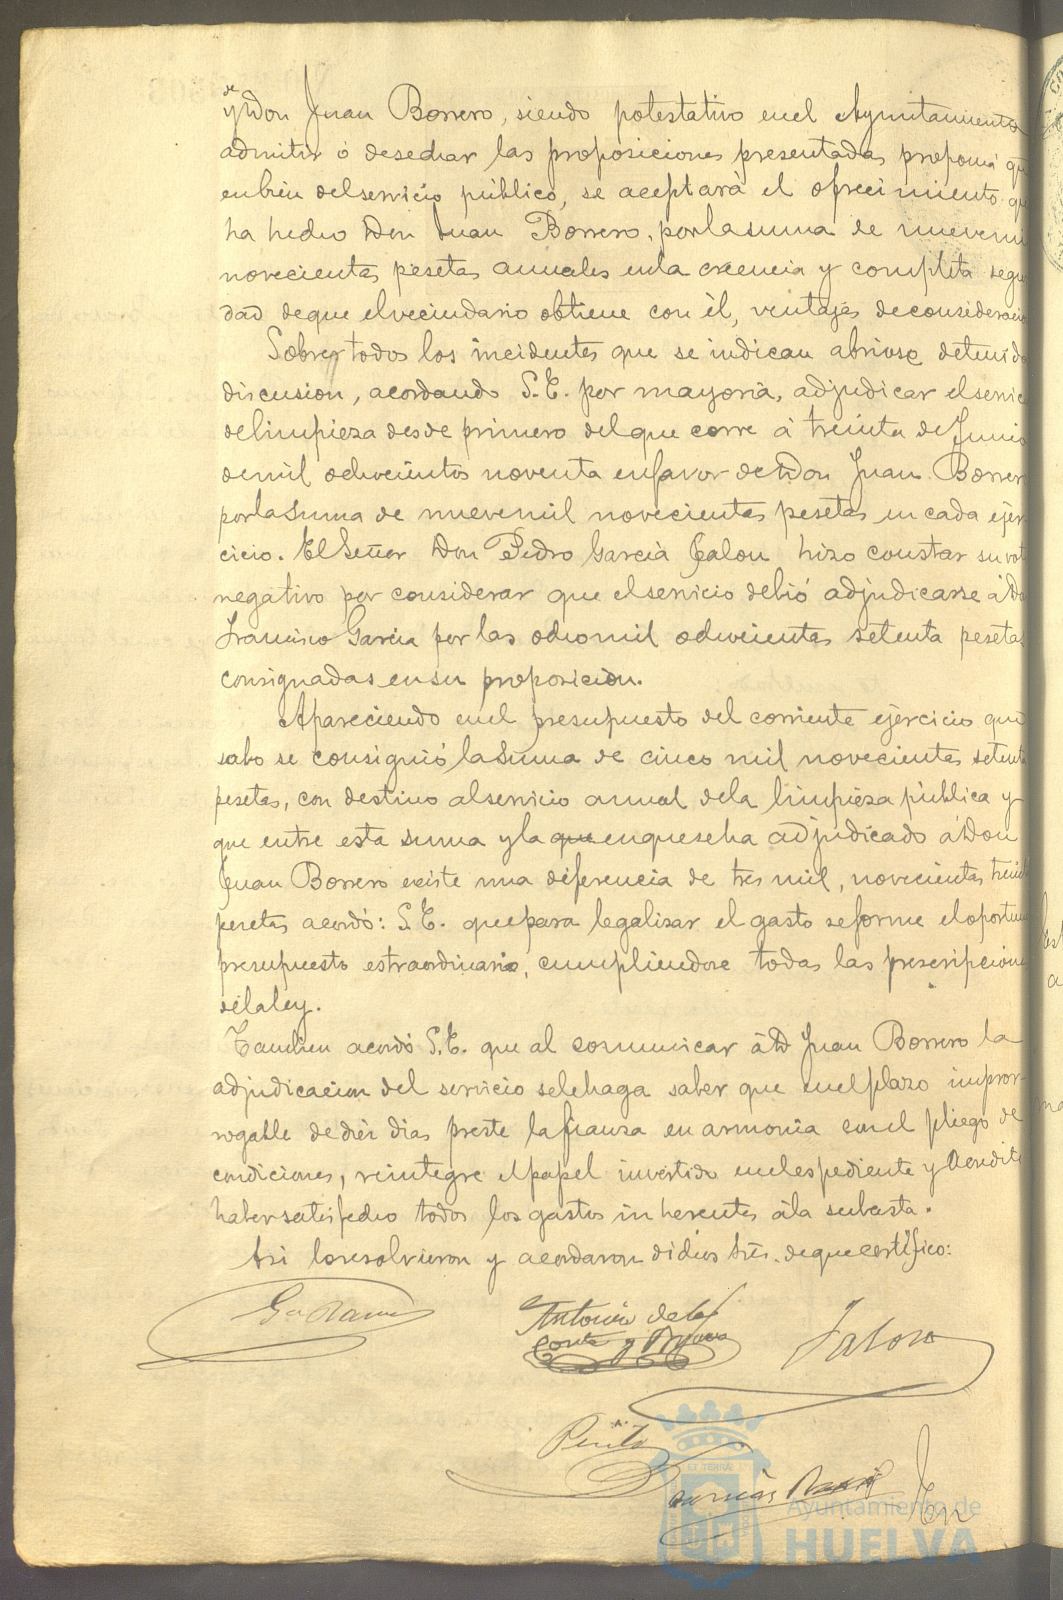 de
y Don Juan Borrero, siendo potestativo en el Ayuntamiento
admitir ó desechar las proposiciones presentadas, proponia qu
en bien del servicio público, se aceptará el ofrecimiento qu
ha hecho Don Juan Borrero, por la suma de nueve mi
novecientas pesetas anuales en la creencia y completa segu
dad de que el vecindario obtiene con él, ventajas de consideracio
Sobre todos los incidentes que se indican abriose detenida
discusion, acordando S.E. por mayoria, adjudicar el servic
de limpieza desde primero del que corre á treinta de Junio
de mil ochocientos noventa en favor de Don Juan Borrero
por la suma de nueve mil novecientas pesetas en cada ejer
cicio. El Señor Don Pedro Garcia Talon hizo constar su vot
negativo por considerar que el servicio debió adjudicarse á Do
Francisco Garcia por las ocho mil ochocientas setenta pesetas
consignadas en su proposicion.
Apareciendo en el presupuesto del corriente ejercicio que
solo se consignó la suma de cinco mil novecientas setenta
pesetas, con destino al servicio annal de la limpieza pública y
que entre esta suma y la que en que se ha adjudicado á Don
Juan Borrero existe una diferencia de tres mil, novecientas treint
pesetas acordó: S.E. que para legalizar el gasto se forme el oportun
presupuesto estraordinario, cumpliendose todas las prescripcion
de la ley.
Tambien acordó S.E. que al comunicar á D Juan Borrero la
adjudicacion del servicio se le haga saber que en el plazo impror-
rogable de diez dias preste la fianza en armonia con el pliego de
condiciones, reintegre el papel invertido en el espediente y acredite
haber satisfecho todos los gastos inherentes á la subasta.
Asi lo resolvieron y acordaron dichos Sres. de que certifico:
Antonio de la
Corte y
Talon
Pinto
En
Ayuntamiento de
HUELVA